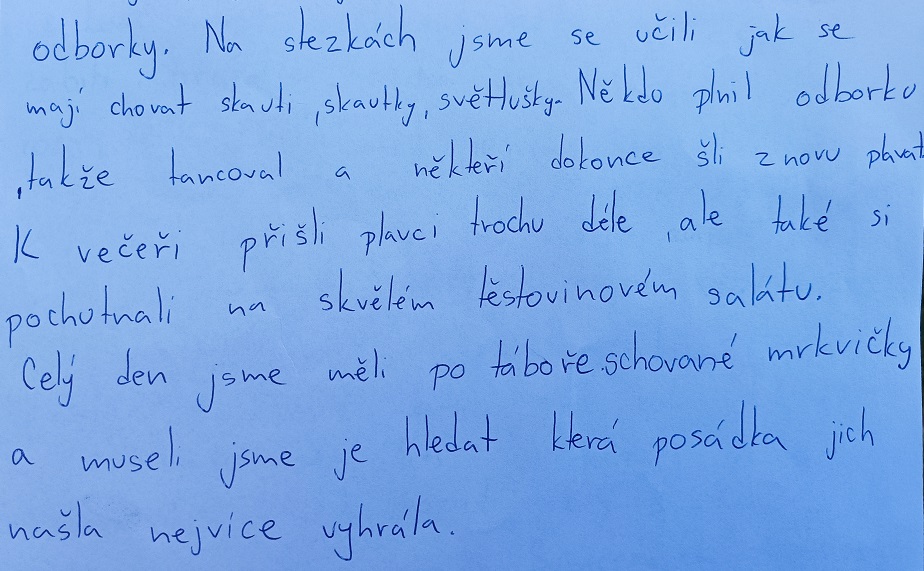 odborky. Na stezkách jsme se učili jak se
mají chovat skauti ,skautky, světlušky. Někdo plnil odborku
,takže tancoval a někteří dokonce šli znovu plavat
K večeři přišli plavci trochu déle ,ale také si
pochutnali na skvělém těstovinovém salátu.
Celý den jsme měli po táboře schované mrkvičky
a museli jsme je hledat která posádka jich
našla nejvíce vyhrála.